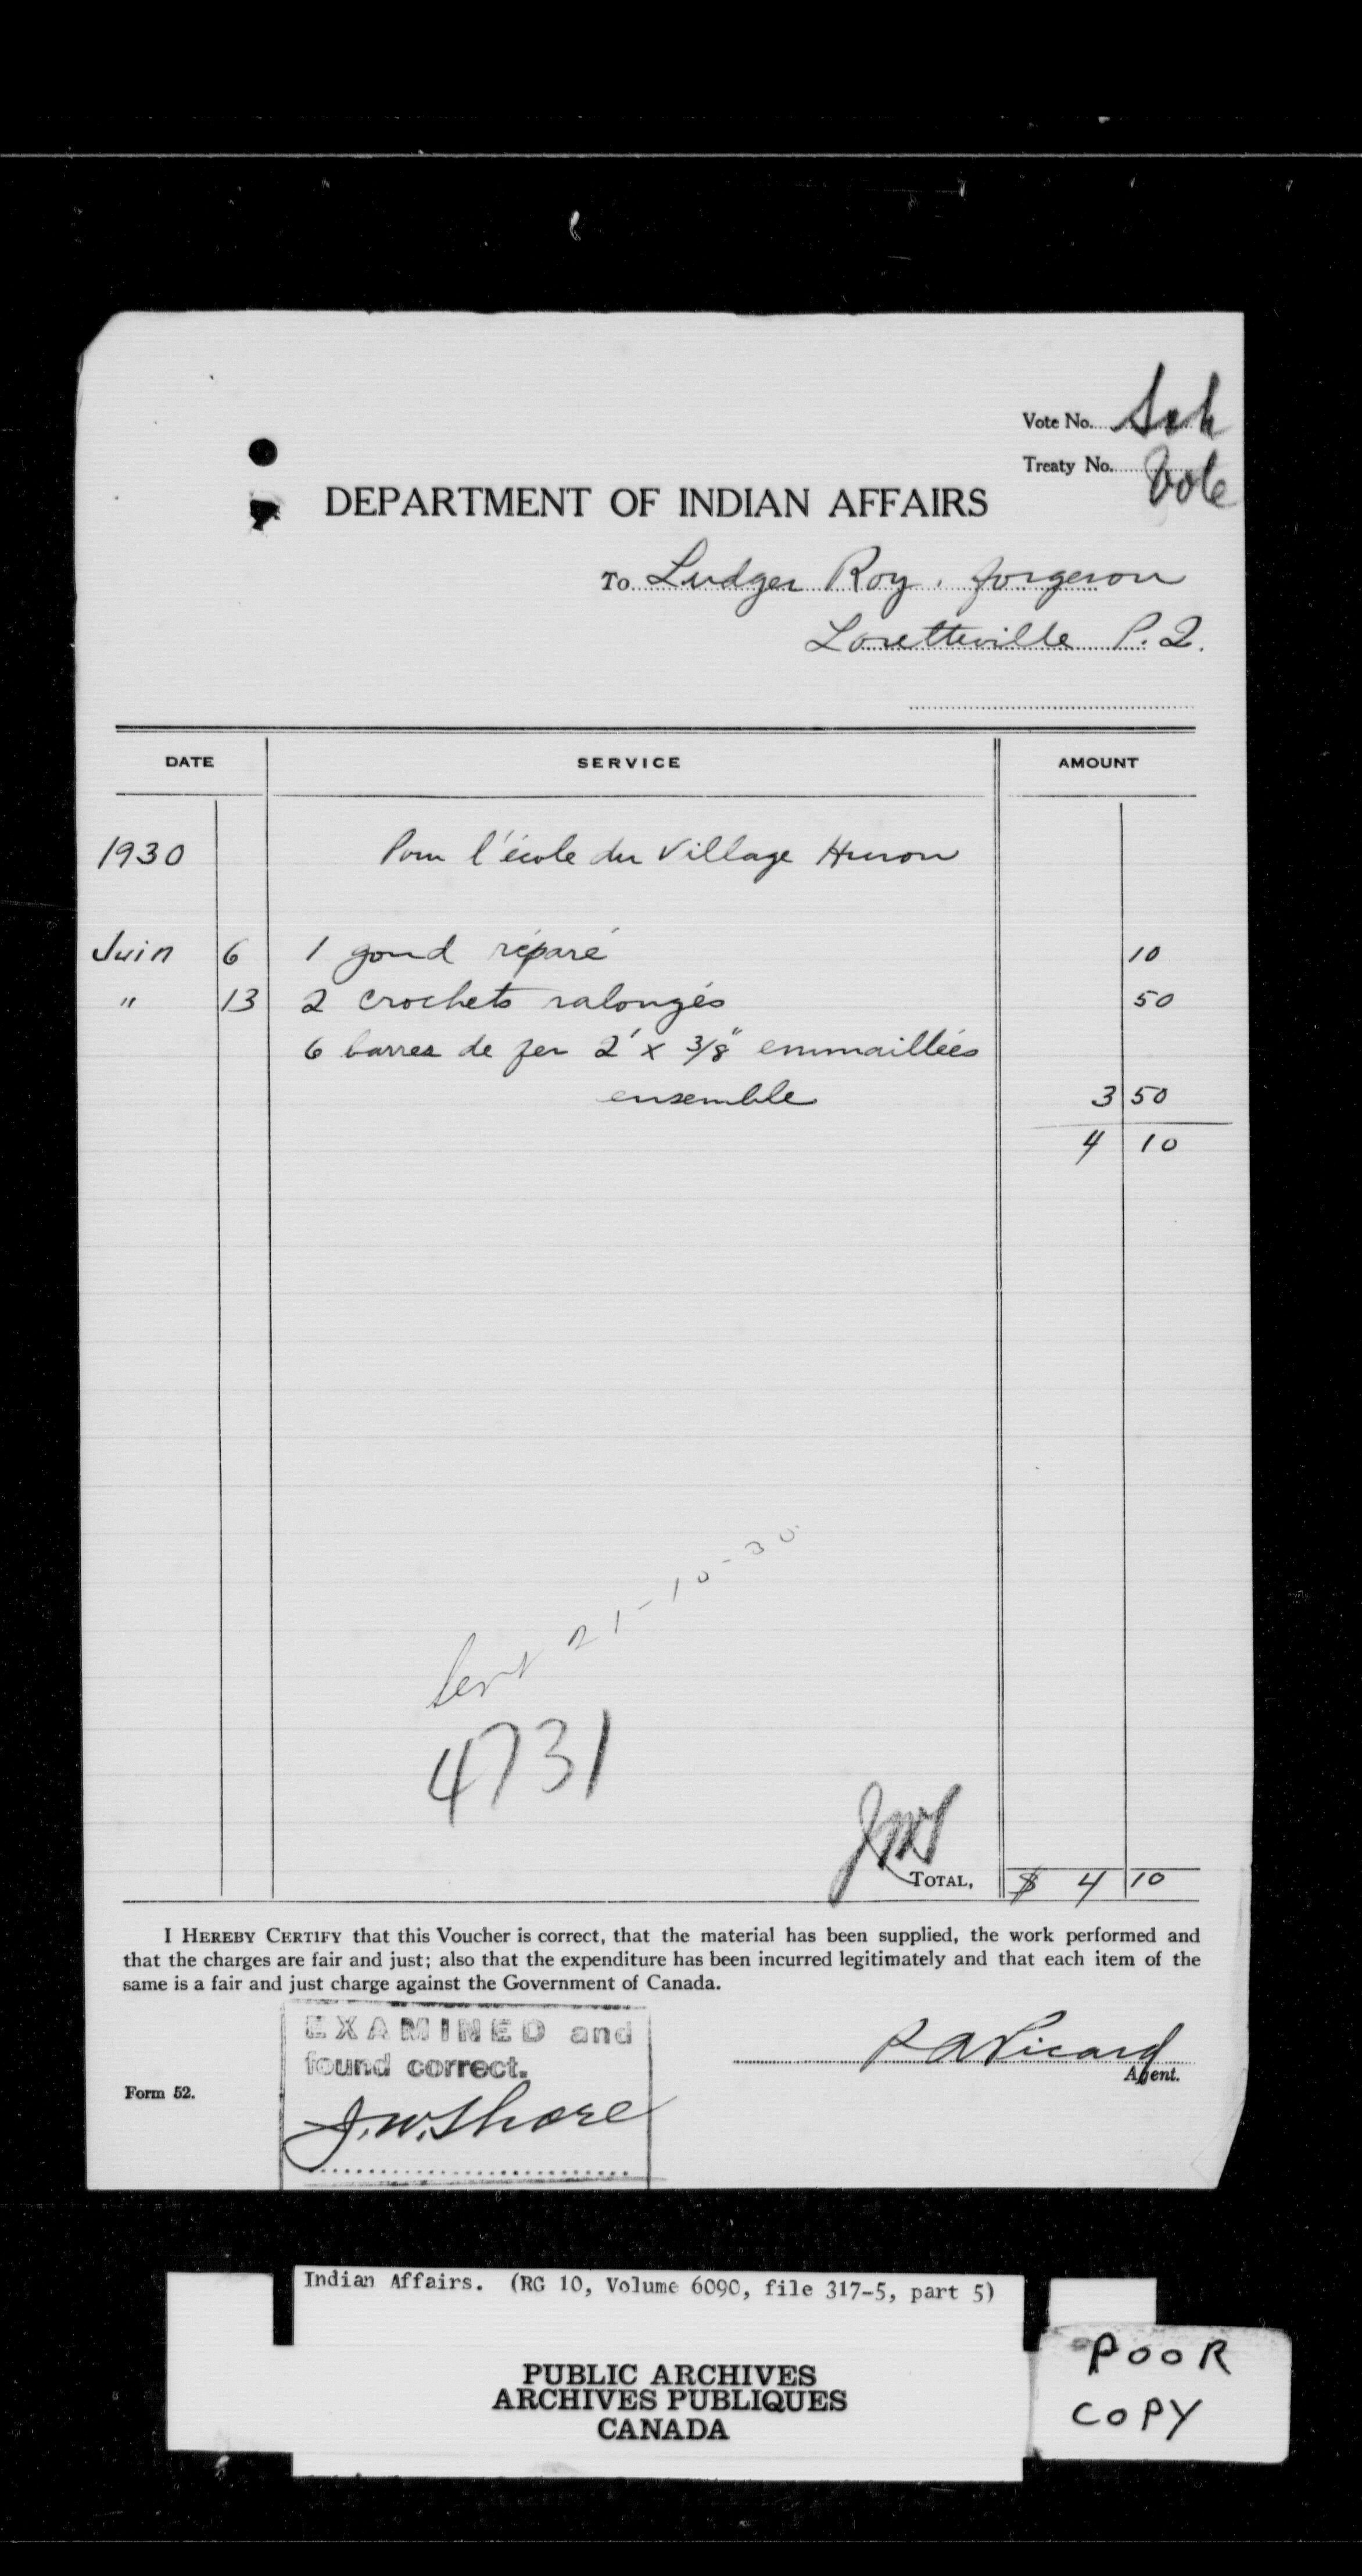 Vote No. Sch
Treaty No. Vote
DEPARTMENT OF INDIAN AFFAIRS
To Ludger Roy. forgeron
Loretteville P.Q.
DATE SERVICE AMOUNT
1930 Pour l'école du Village Huron
Juin 6 1 gond réparé 10
" 13 2 crochets ralongés 50
6 barres de fer 2' x 3/8" emmaillées
ensemble 3 50
4 10
Sent 21-10-30
4731
JWS
TOTAL, $ 4 10
I HEREBY CERTIFY that this Voucher is correct, that the material has been supplied, the work performed and
that the charges are fair and just; also that the expenditure has been incurred legitimately and that each item of the
same is a fair and just charge against the Government of Canada.
EXAMINED and
found correct.
J.W. Shore
Picard
Agent.
Form 52.
Indian Affairs. (RG 10, Volume 6090, file 317-5, part 5)
PUBLIC ARCHIVES
ARCHIVES PUBLIQUES
CANADA
POOR
COPY